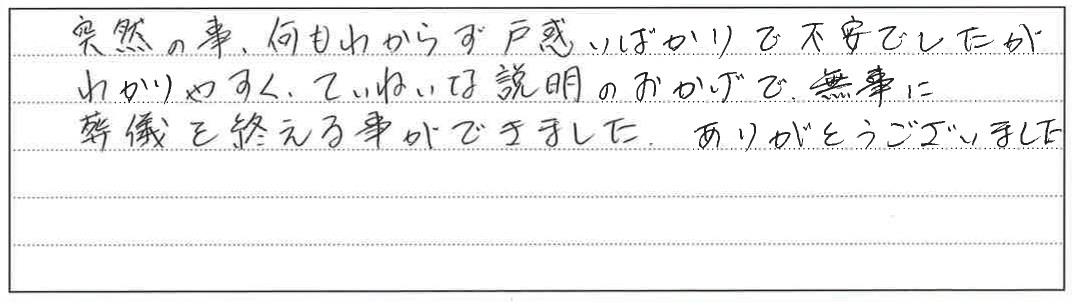 突然の事、何もわからず戸惑いばかりで不安でしたが
わかりやすく、ていねいな説明のおかげで、無事に
葬儀を終える事ができました。ありがとうございました